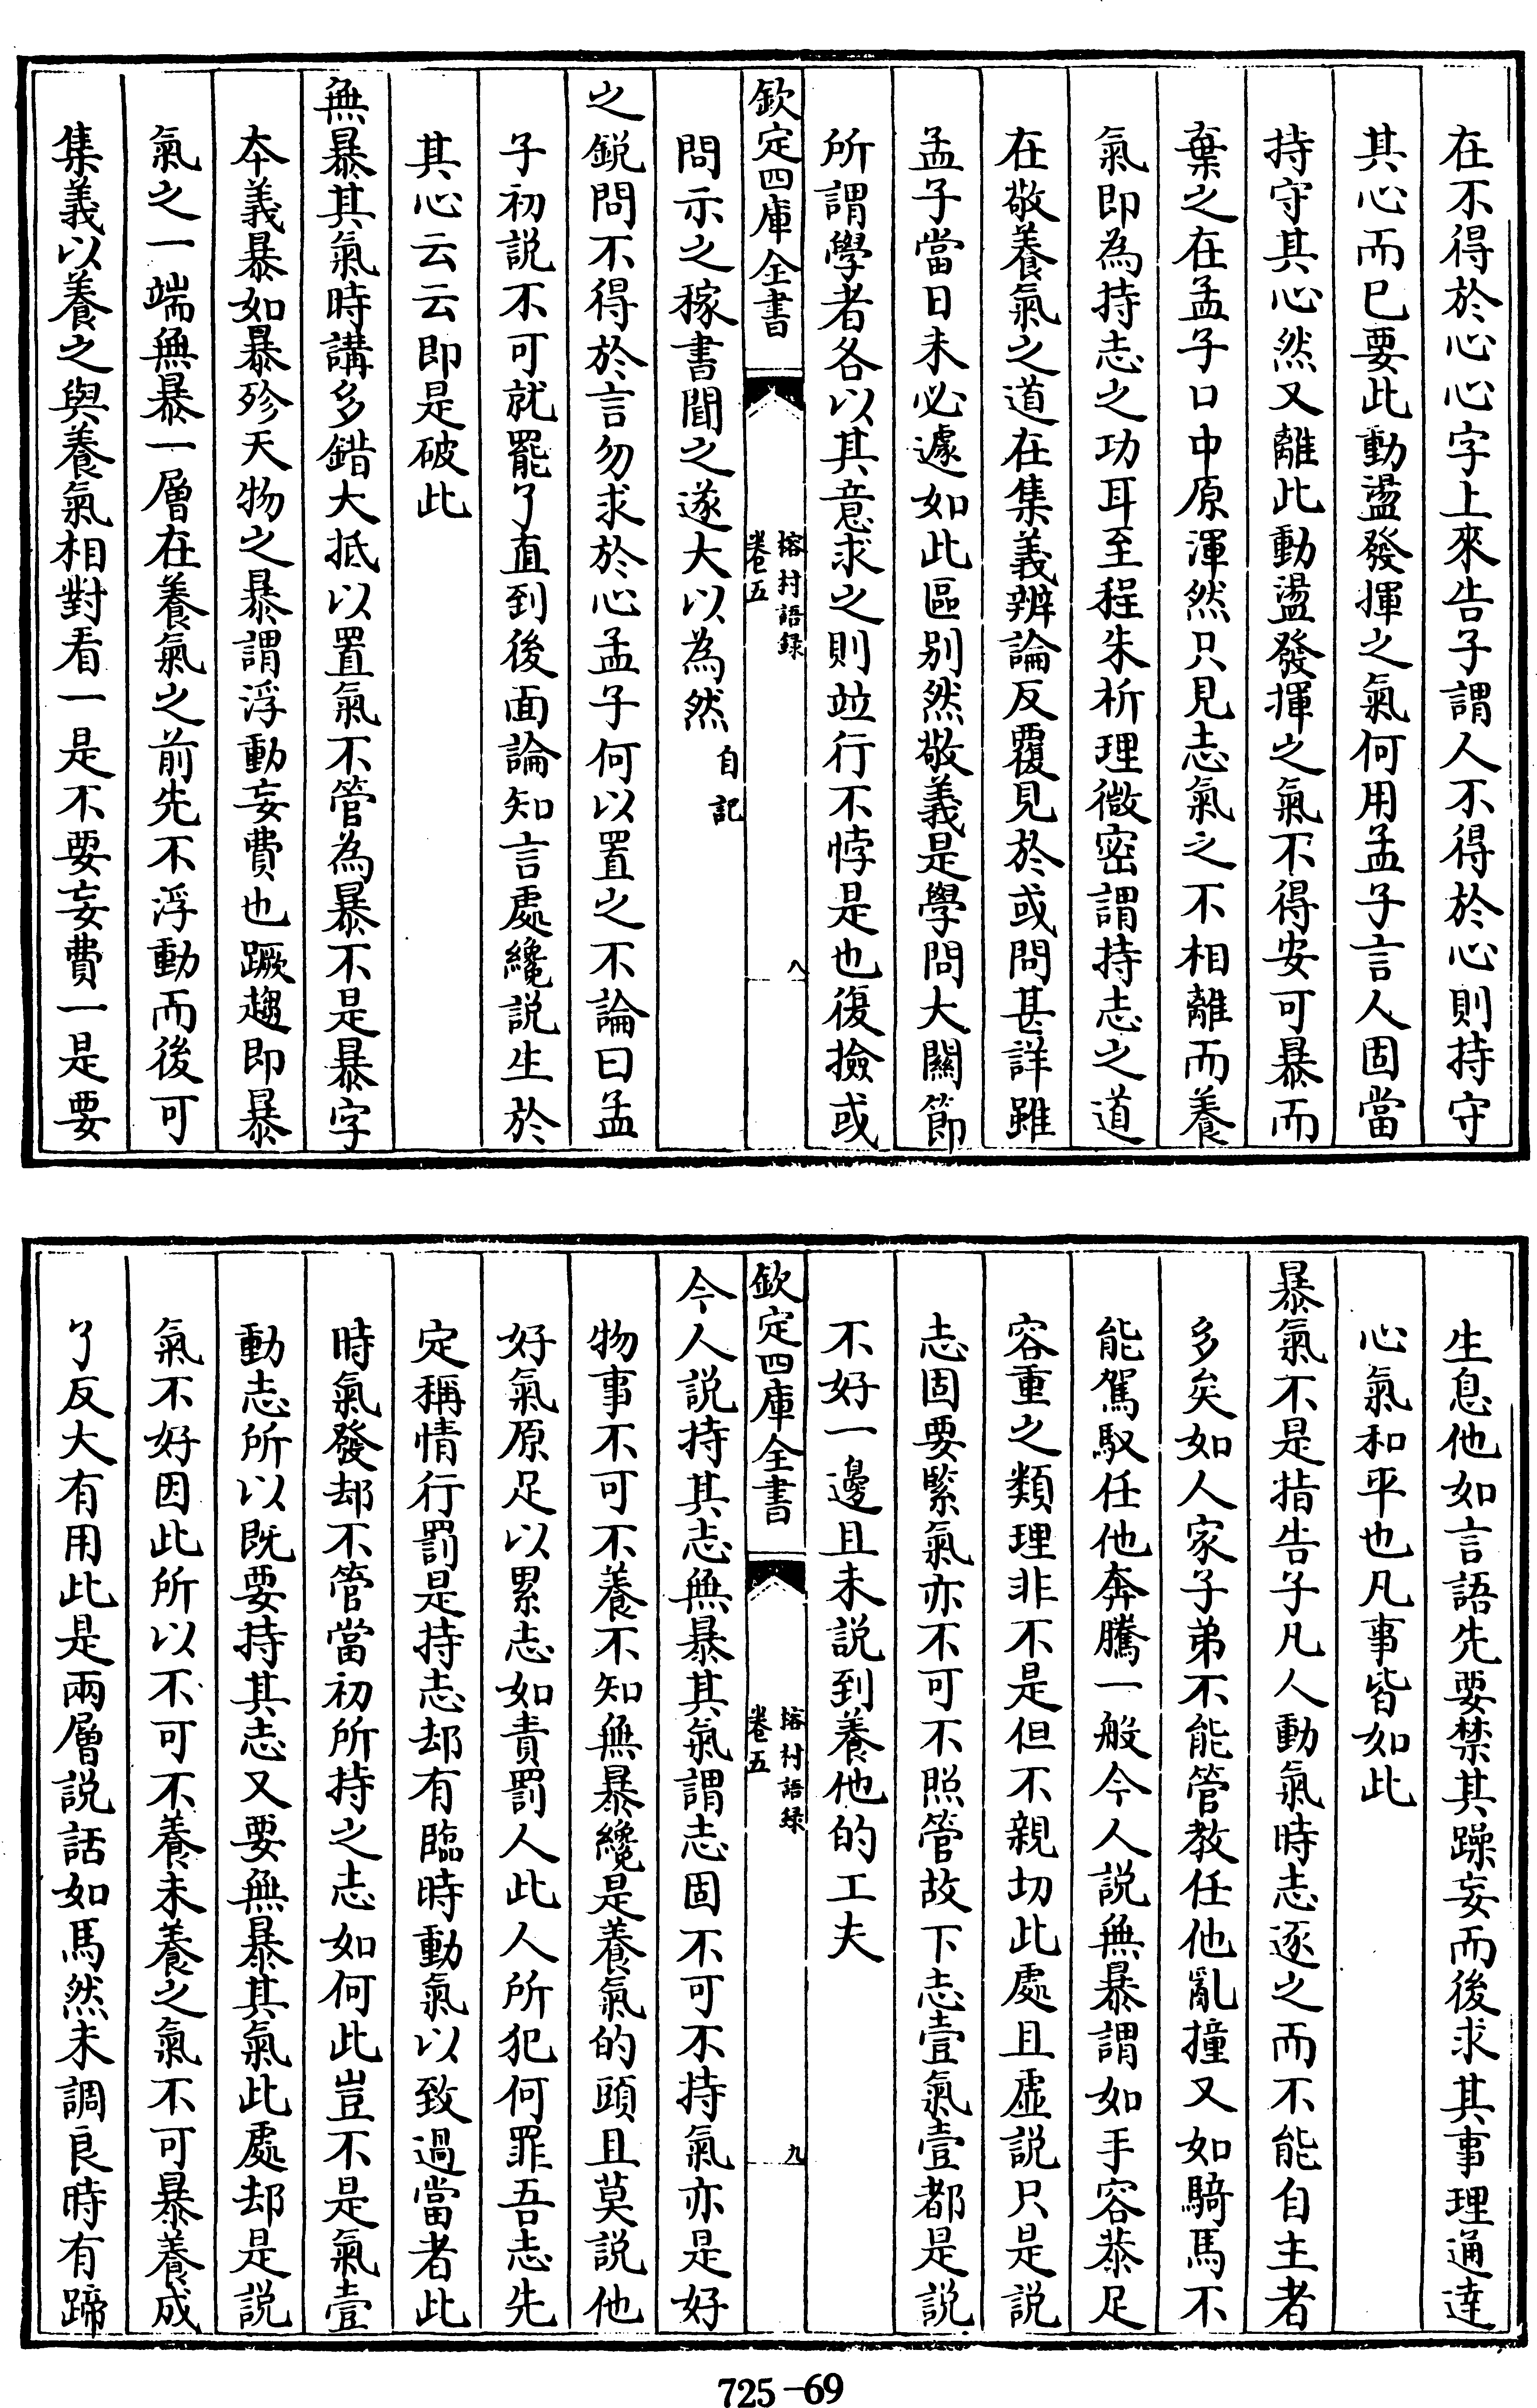 在不得於心心字上來告子謂人不得於心則持守
其心而已要此動盪發揮之氣何用孟子言人固當
持守其心然又離此動盪發揮之氣不得安可暴而
棄之在孟子口中原渾然只見志氣之不相離而養
氣即為持志之功耳至程朱析理微密謂持志之道
在敬養氣之道在集義辨論反覆見於或問甚詳雖
孟子當日未必遽如此區别然敬義是學問大闗節
所謂學者各以其意求之則竝行不悖是也復撿或
欽定四庫全書
榕村語録
卷五
八
問示之稼書聞之遂大以為然自記
之鋭問不得於言勿求於心孟子何以置之不論曰孟
子初説不可就罷了直到後面論知言處纔説生於
其心云云即是破此
無暴其氣時講多錯大抵以置氣不管為暴不是暴字
本義暴如暴殄天物之暴謂浮動妄費也蹶趨即暴
氣之一端無暴一層在養氣之前先不浮動而後可
集義以養之與養氣相對看一是不要妄費一是要
生息他如言語先要禁其躁妄而後求其事理通達
心氣和平也凡事皆如此
暴氣不是指告子凡人動氣時志逐之而不能自主者
多矣如人家子弟不能管教任他亂撞又如騎馬不
能駕馭任他奔騰一般今人説無暴謂如手容恭足
容重之類理非不是但不親切此處且虛説只是説
志固要緊氣亦不可不照管故下志壹氣壹都是説
不好一邊且未説到養他的工夫
欽定四庫全書
榕村語録
卷五
九
今人説持其志無暴其氣謂志固不可不持氣亦是好
物事不可不養不知無暴纔是養氣的頭且莫説他
好氣原足以累志如責罰人此人所犯何罪吾志先
定稱情行罰是持志却有臨時動氣以致過當者此
時氣發却不管當初所持之志如何此豈不是氣壹
動志所以既要持其志又要無暴其氣此處却是説
氣不好因此所以不可不養未養之氣不可暴養成
了反大有用此是兩層説話如馬然未調良時有蹄
725-69